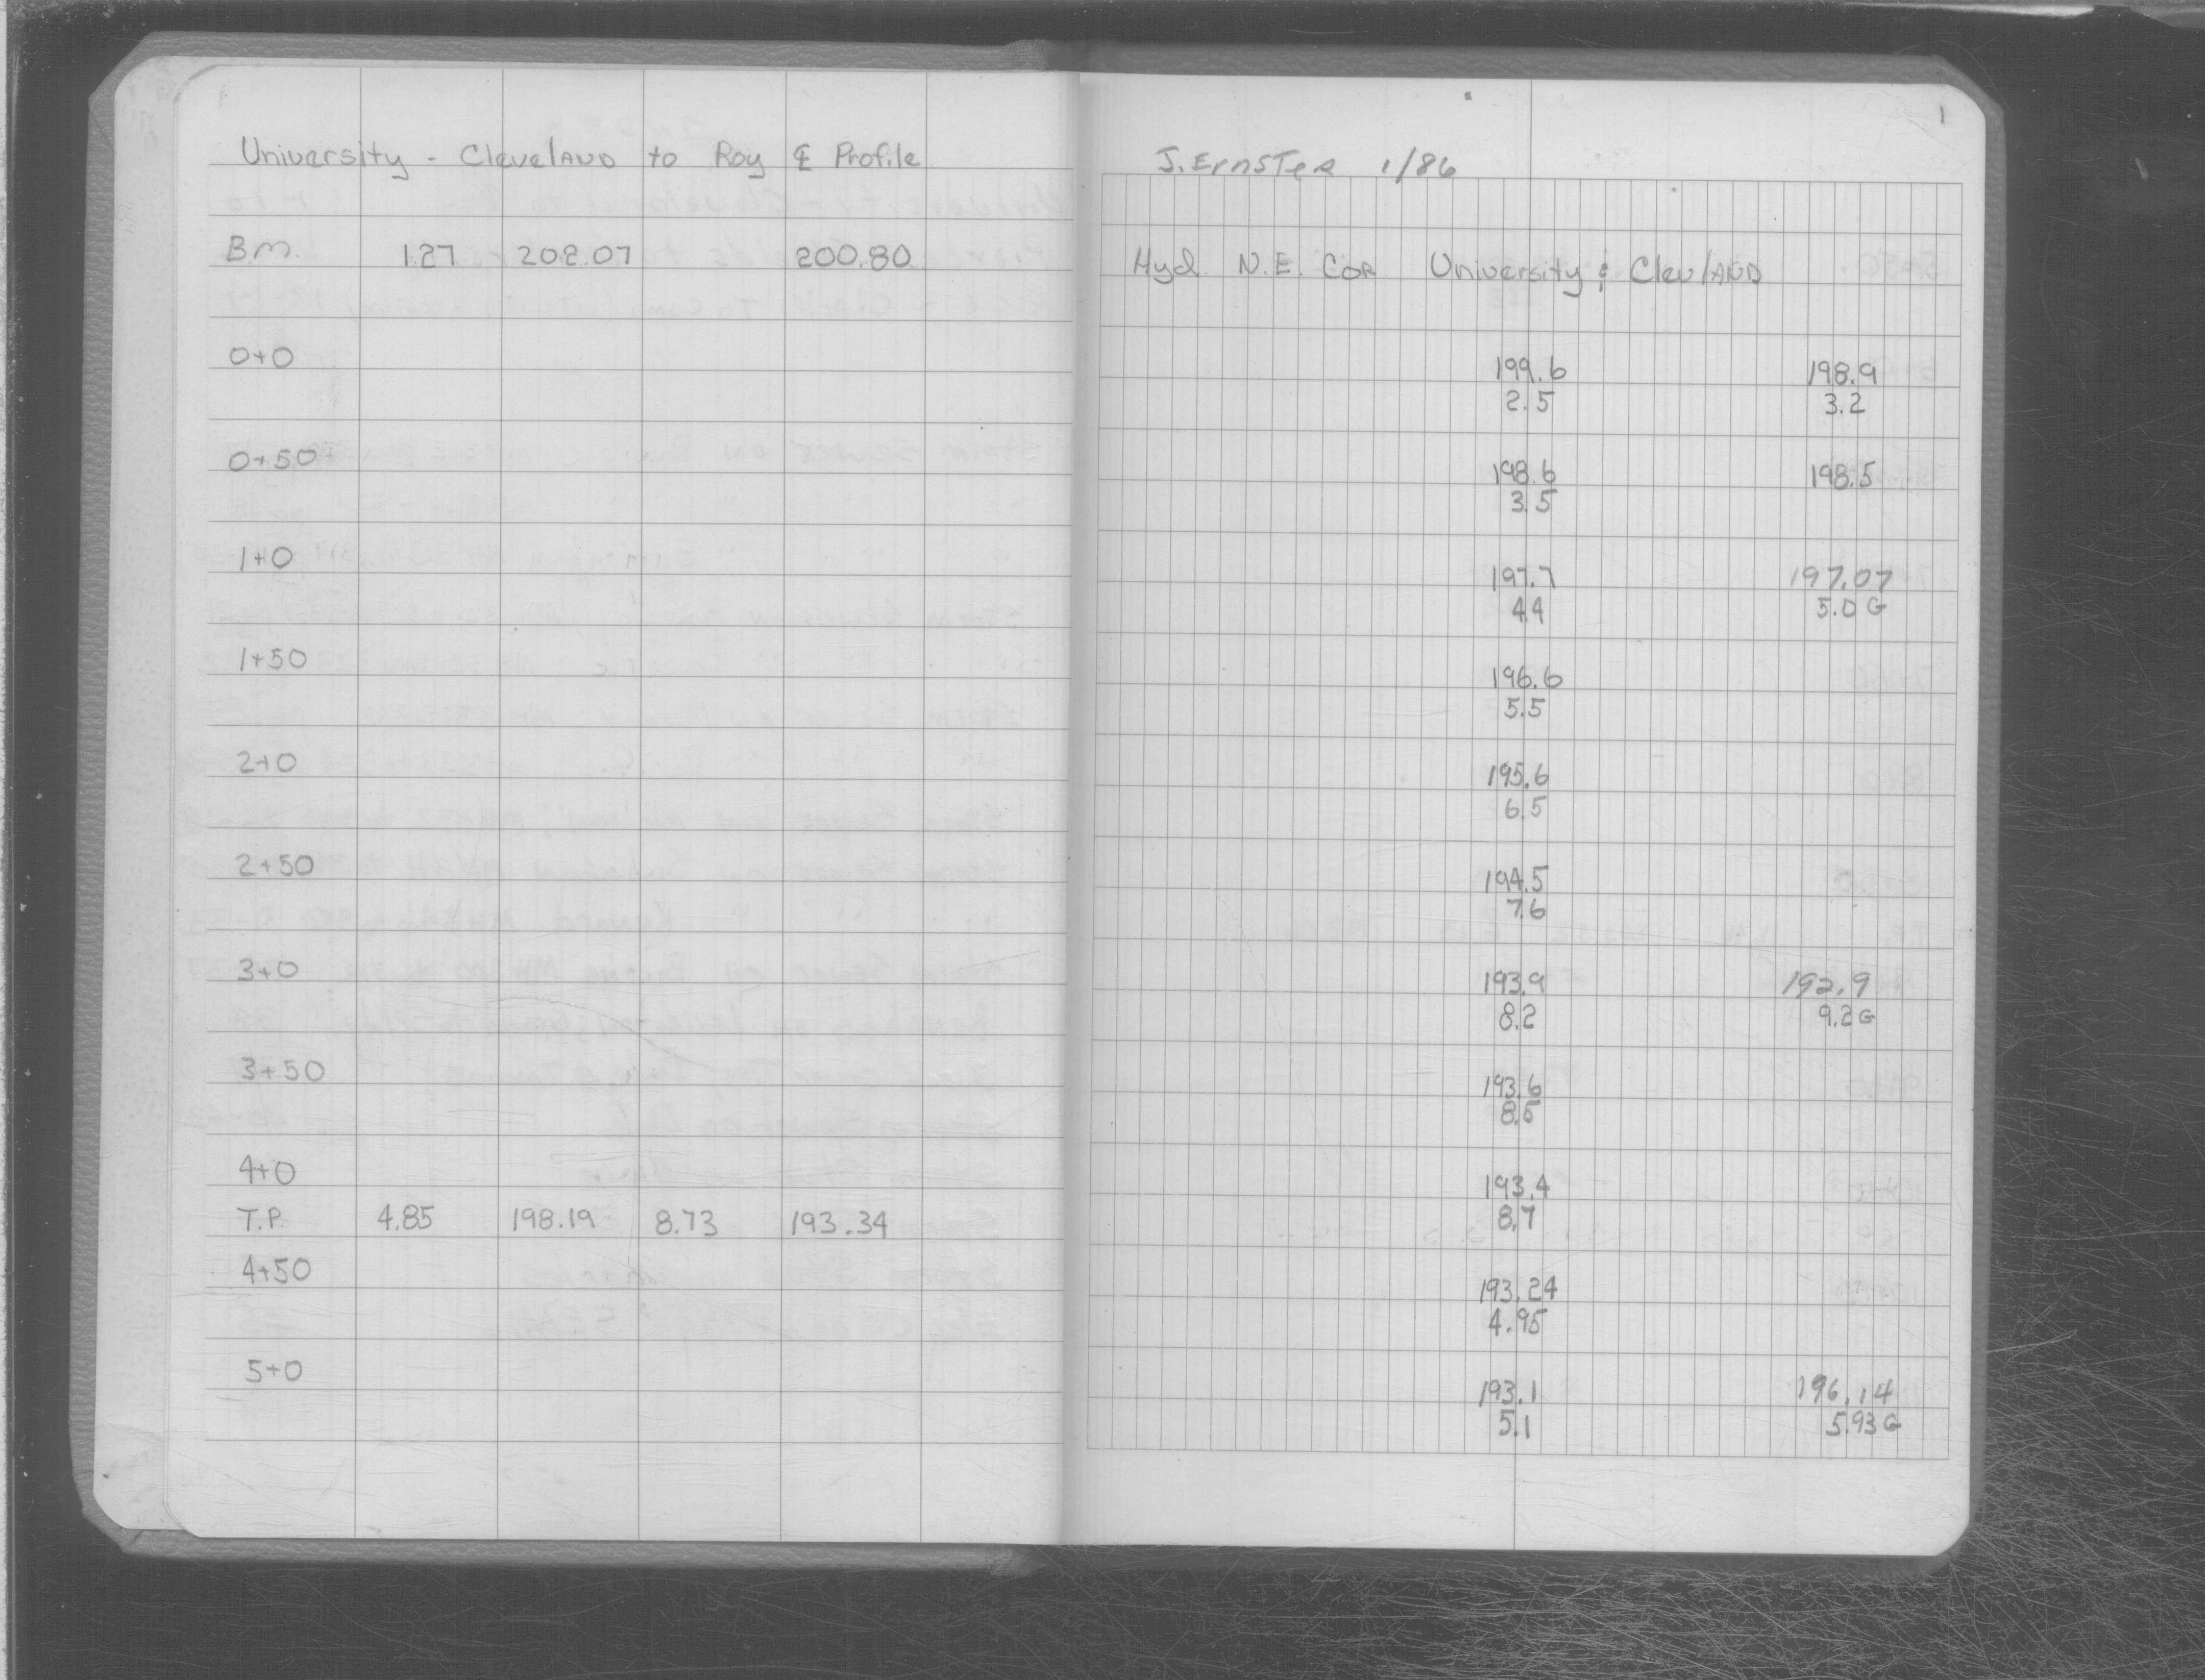 University - Cleveland to Roy ℄ Profile
B.M. 1.27 202.07 200.80
0+0
0+50
1+0
1+50
2+0
2+50
3+0
3+50
4+0
T.P. 4.85 198.19 8.73 193.34
4+50
5+0
1
J. Ernster 1/86
Hyd N.E. Cor University & Clevland
199.6 198.9
2.5 3.2
198.6 198.5
3.5
197.7 197.07
4.4 5.0 G
196.6
5.5
195.6
6.5
194.5
7.6
193.9 192.9
8.2 9.2 G
193.6
8.5
193.4
8.7
193.24
4.95
193.1 196.14
5.1 5.93 G